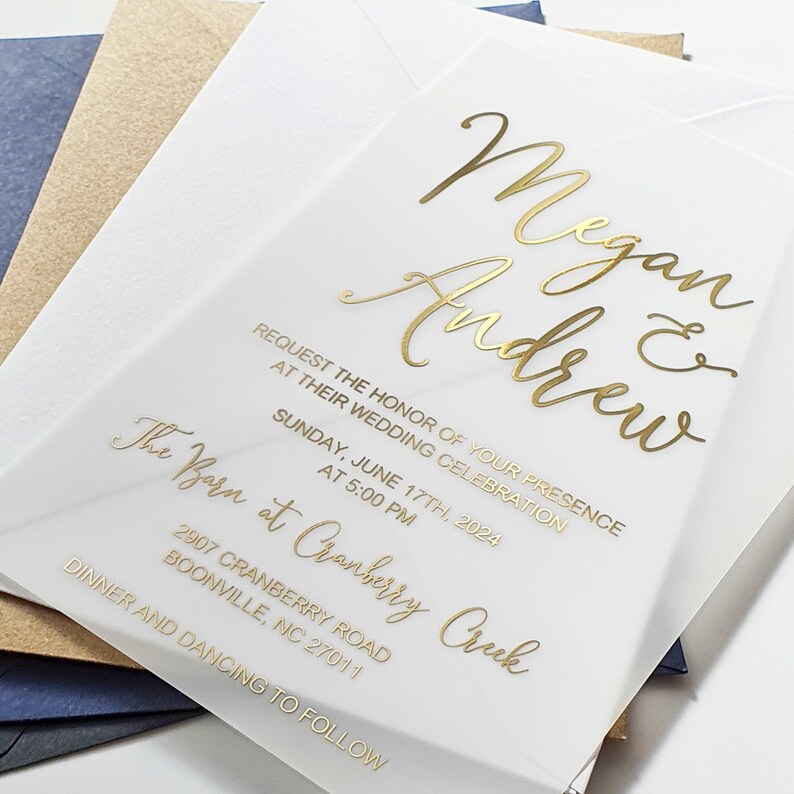 Megan
&
Andrew
REQUEST THE HONOR OF YOUR PRESENCE
AT THEIR WEDDING CELEBRATION
SUNDAY, JUNE 17TH, 2024
AT 5:00 PM
The Barn at Cranberry Creek
2907 CRANBERRY ROAD
BOONVILLE, NC 27011
DINNER AND DANCING TO FOLLOW